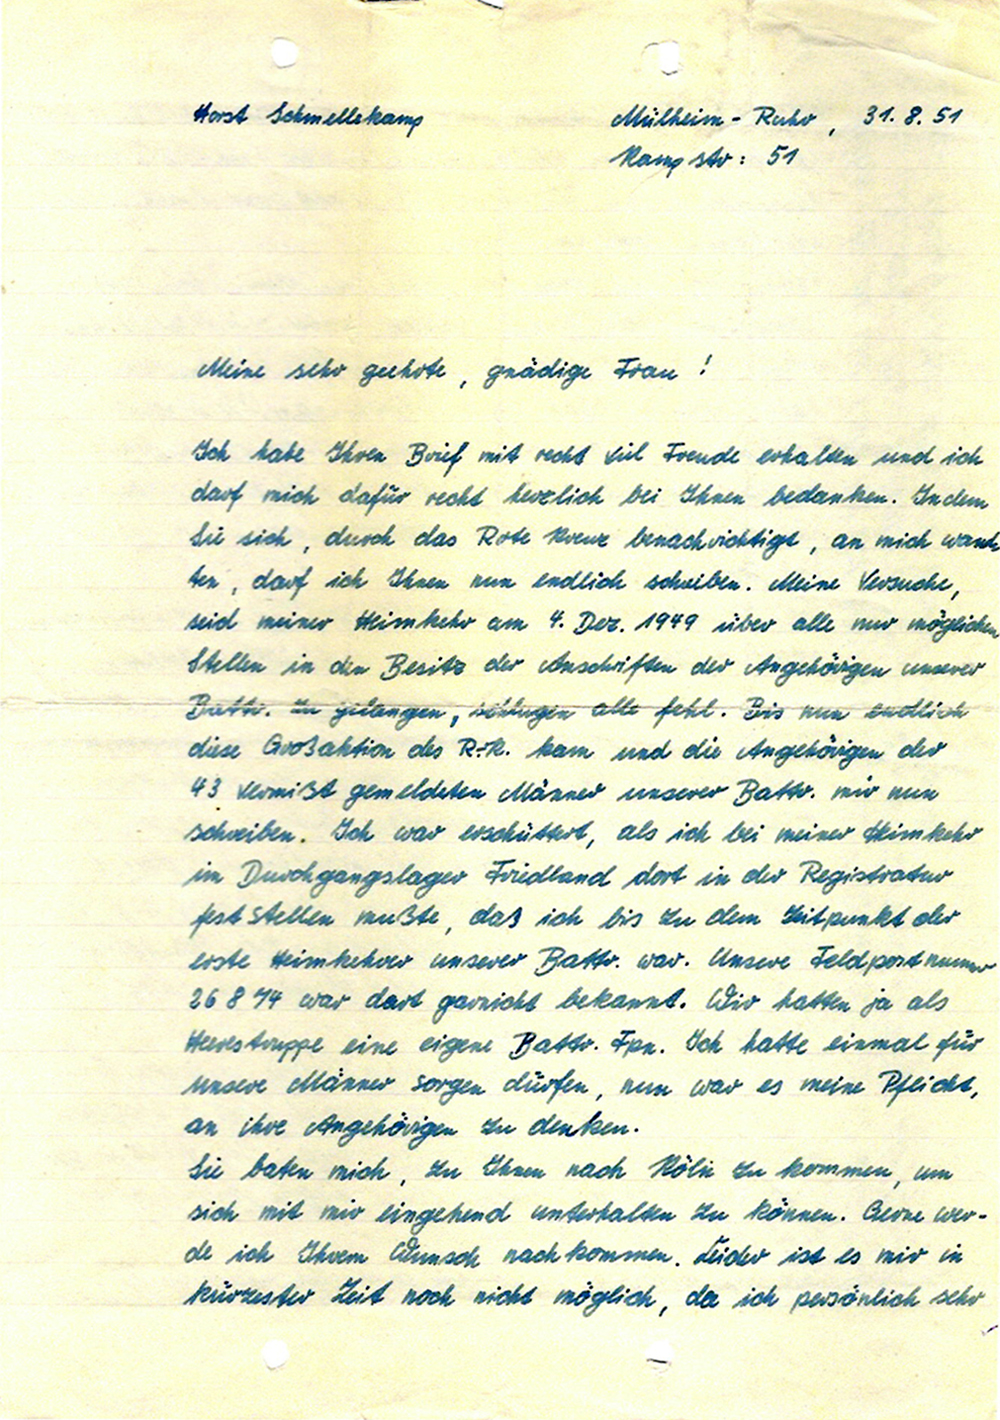 Horst Schmellekamp
Mülheim - Ruhr, 31. 8. 51
Kampstr: 51
Meine sehr geehrte, gnädige Frau!
Ich habe Ihren Brief mit recht viel Freude erhalten und ich
darf mich dafür recht herzlich bei Ihnen bedanken. Indem
Sie sich, durch das Rote Kreuz benachrichtigt, an mich wand-
ten, darf ich Ihnen nun endlich schreiben. Meine Versuche,
seid meiner Heimkehr am 4. Dez. 1949 über alle nur möglichen
Stellen in den Besitz der Anschriften der Angehörigen unserer
Battr. zu gelangen, schlugen alle fehl. Bis nun endlich
diese Großaktion des R.K. kam und die Angehörigen der
43 vermißt gemeldeten Männer unserer Battr. mir nun
schreiben. Ich war erschüttert, als ich bei meiner Heimkehr
im Durchgangslager Friedland dort in der Registratur
feststellen mußte, daß ich bis zu dem Zeitpunkt der
erste Heimkehrer unserer Battr. war. Unsere Feldpostnummer
26 8 74 war dort garnicht bekannt. Wir hatten ja als
Heerestruppe eine eigene Battr. Fpn. Ich hatte einmal für
unsere Männer sorgen dürfen, nun war es meine Pflicht,
an ihre Angehörigen zu denken.
Sie baten mich, zu Ihnen nach Köln zu kommen, um
sich mit mir eingehend unterhalten zu können. Gerne wer-
de ich Ihrem Wunsch nachkommen. Leider ist es mir in
kürzester Zeit noch nicht möglich, da ich persönlich sehr